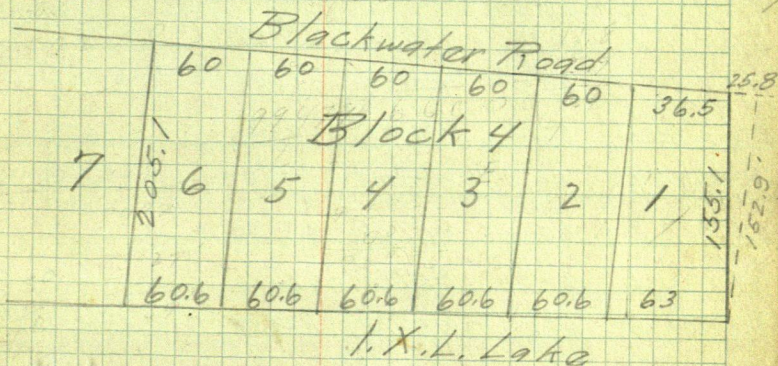 Blackwater Road
60 60 60 60 60 36.5 25.8
Block 4
7 205.1 6 5 4 3 2 1 155.1 152.9
60.6 60.6 60.6 60.6 60.6 63
I.X.L. Lake